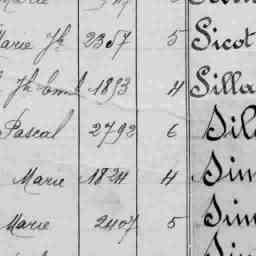 Marie Jh 2357 5 Sicot
Jh 1893 4 Silla
Pascal 2792 6 Sil
Marie 1824 4 Sim
Marie 2407 5 Sim